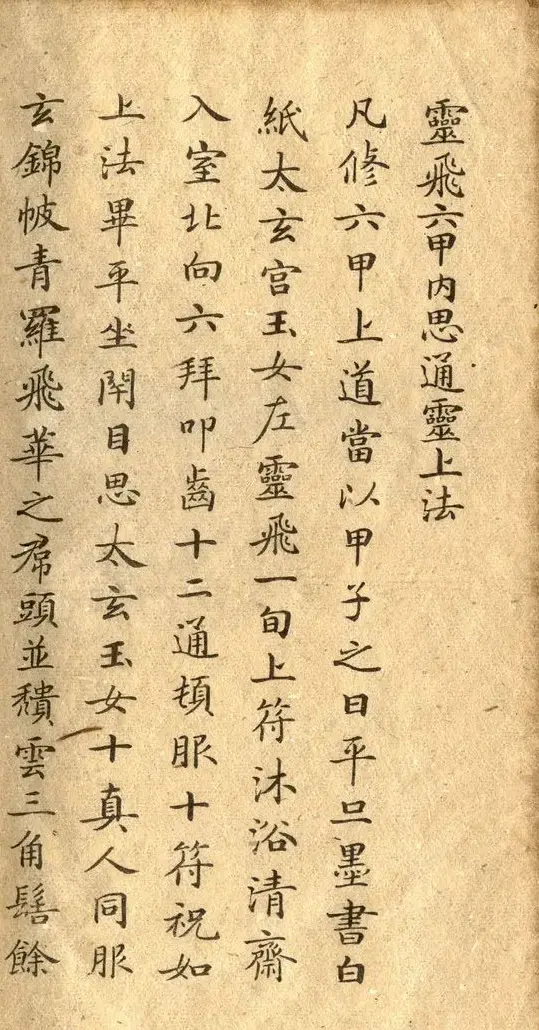 靈飛六甲內思通靈上法
凡修六甲上道當以甲子之日平旦墨書白
紙太玄宮玉女左靈飛一旬上符沐浴清齋
入室北向六拜叩齒十二通頓服十符祝如
上法畢平坐閉目思太玄玉女十真人同服
玄錦帔青羅飛華之帬頭並穨雲三角髻餘